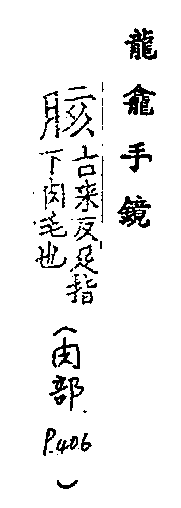 龍龕手鏡
胲古来反足指
下肉毛也
(肉部 P.406)